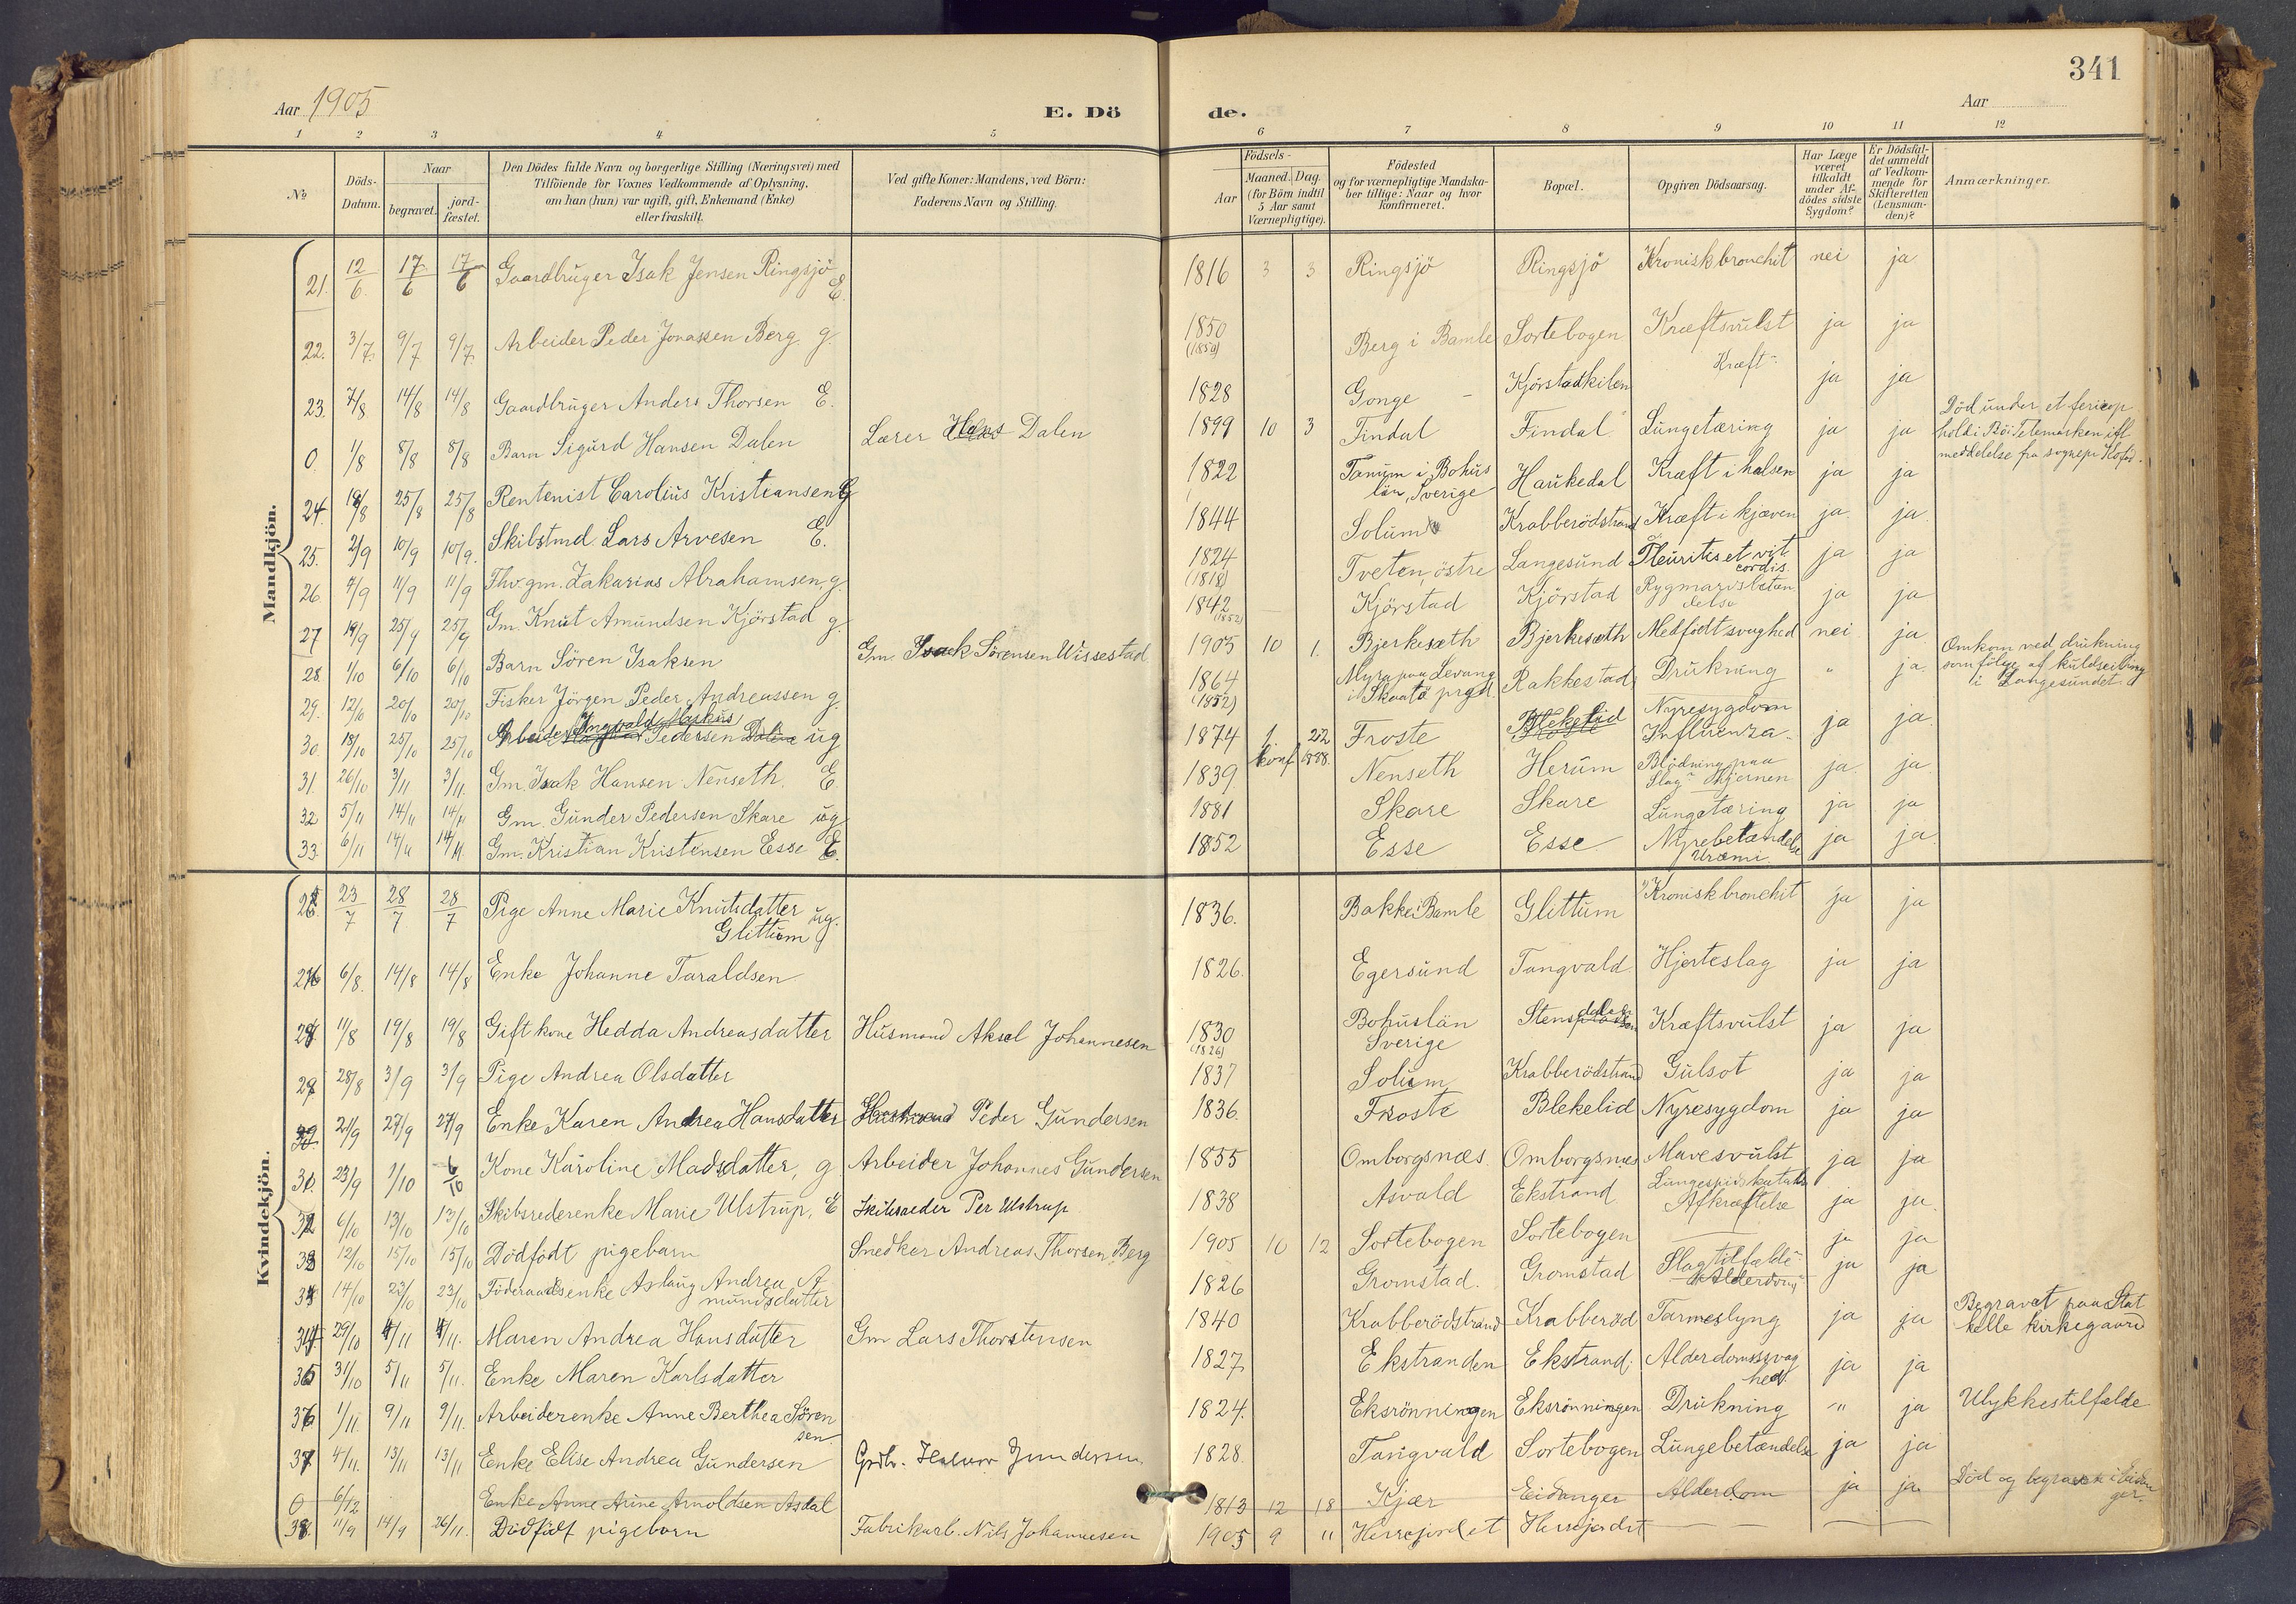 341
Aar 1905
E. Dö
de.
Aar
1 2 3 4 5 6 7 8 9 10 11 12
No
Döds-Datum.
Naar
begravet.
jord-fæstet.
Den Dödes fulde Navn og borgerlige Stilling (Næringsvei) med
Tilföiende for Voxnes Vedkommende af Oplysning,
om han (hun) var ugift, gift, Enkemand (Enke)
eller fraskilt.
Ved gifte Koner: Mandens, ved Börn:
Faderens Navn og Stilling.
Födsels-
Aar
Maaned. Dag.
(for Börn indtil
5 Aar samt
Værnepligtige).
Födested
og for værnepligtige Mandska-
ber tillige: Naar og hvor
konfirmeret.
Bopæl.
Opgiven Dödsaarsag.
Har Læge
været
tilkaldt
under Af-
dödes sidste
Sygdom?
Er Dödsfal-
det anmeldt
af Vedkom-
mende for
Skifteretten
(Lensman-
den)?
Anmærkninger.
Mandkjön.
21. 12/6. 17/6 17/6 Gaardbruger Isak Jensen Ringsjö E. 1816 3 3 Ringsjö Ringsjö Kronisk bronchit nei ja
22. 3/7. 9/7 9/7. Arbeider Peder Jonassen Berg g. 1850 Berg i Bamle Sortebogen Kræftsvulst ja ja
23. 7/8 14/8 14/8 Gaardbruger Anders Thorsen E. 1828 Gonge Kjörstadkilen Kræft ja ja
0. 1/8 8/8 8/8 Barn Sigurd Hansen Dalen Lærer Hans Dalen 1899 10 3 Findal Findal Lungetæring ja ja Död under et ferieop
hold i Bö i Telemarken ifl
meddelelse fra sognepr
24. 18/8 25/8 25/8 Rentenist Carolius Kristiansen G 1822 Tanum i Bohus
län, Sverige Haukedal Kræft i halsen ja ja
25. 2/9 10/9 10/9. Skibstmd. Lars Arvesen E. 1844 Solum Krabberödstrand Kræft i kjæven ja ja
26. 4/9 11/9 11/9 Fhv. gm. Zakarias Abrahamsen, g. 1824
(1818) Tveten, östre Langesund Pleuritis et vit.
cordis. ja ja
27 19/9 25/9 25/9 Gm. Knut Amundsen Kjörstad g. 1842
(1852) Kjörstad Kjörstad Rygmarvsbetæn
delse ja ja
28. 1/10 6/10 6/10 Barn Sören Isaksen Gm. Isack Sörensen Wissestad 1905 10 1. Bjerkesæth Bjerkesæth Medfödt svaghed nei ja
29. 12/10 20/10 20/10 Fisker Jörgen Peder Andreassen g. 1864
(1852) Myra paa Levang
i Skaatö prgd. Rakkestad Drukning " ja Omkom ved drukning
som fölge af kuldseiling
i Langesundet
30. 18/10 25/10 25/10 Arbeider Ingvald Markus Pedersen ug 1874 1 22 Froste Blekelid Nyresygdom
Influenza. ja ja
konf 1888.
31. 26/10 3/11 3/11. Gm. Isak Hansen Nenseth. E. 1839 Nenseth Herum Blödning paa
Slag Hjernen ja ja
32 5/11 14/11 14/11 Gm. Gunder Pedersen Skare ug 1881 Skare Skare Lungetæring ja ja
33. 6/11 14/11 14/11. Gm. Kristian Kristensen Esse E. 1852 Esse Esse Nyrebetændelse
Uræmi. ja ja
Kvindekjön.
25. 23/7 28/7 28/7 Pige Anne Marie Knutsdatter ug.
Glittum 1836. Bakke i Bamle Glittum Kronisk bronchit ja ja
26 6/8. 14/8 14/8 Enke Johanne Taraldsen 1826. Egersund Tangvald Hjerteslag ja ja
11/8 19/8 19/8 Gift kone Hedda Andreasdatter Husmand Aksel Johannesen 1830
(1826) Bohuslän
Sverige Kræftsvulst ja ja
28/8 3/9 3/9 Pige Andrea Olsdatter 1837 Solum Krabberödstrand Gulsot ja ja
21/9 27/9 27/9 Enke Karen Andrea Hansdatter Husmand Peder Gundersen 1836. Froste Blekelid Nyresygdom ja ja
23/9 1/10 6/10 Kone Karoline Madsdatter, g Arbeider Johannes Gundersen 1855 Omborgsnæs. Omborgsnæs Mavesvulst ja ja
6/10 13/10 13/10 Skibsrederenke Marie Ulstrup, E Skibsreder Per Ulstrup 1838 Asvald Ekstrand Afkræftelse ja ja
12/10 15/10 15/10 Dödfödt pigebarn Snedker Andreas Thorsen Berg 1905 10 12 Sortebogen Sortebogen ja ja
14/10 23/10 23/10 Föderaadsenke Aslaug Andrea A
mundsdatter 1826 Gromstad. Gromstad Slagtilfælde
Alderdom ja ja
34 29/10 4/11 4/11. Maren Andrea Hansdatter Gm Lars Thorstensen 1840 Krabberödstrand Krabberöd Tarmeslyng ja ja Begravet paa Stat
helle kirkegaard
35 31/10 5/11 5/11. Enke Maren Karlsdatter 1827. Ekstranden Ekstrand. Alderdomssvag
hed ja ja
36 1/11. 9/11 9/11. Arbeiderenke Anne Berthea Sören
sen 1824. Eksrönningen Eksrönningen Drukning " ja Ulykkestilfælde
37 4/11. 13/11 13/11 Enke Elise Andrea Gundersen Grdbr. Halvor Gundersen 1828. Tangvald Sortebogen Lungebetændelse ja ja
0 6/12 Enke Anne Arine Arnoldsen Asdal 1813 12 18 Kjær Eidanger Alderdom ja ja Död og begravet i Eidan
ger.
38. 11/9 14/9 26/11. Dödfödt pigebarn Fabrikarb. Nils Johannesen 1905 9 " Herrejordet Herrejordet